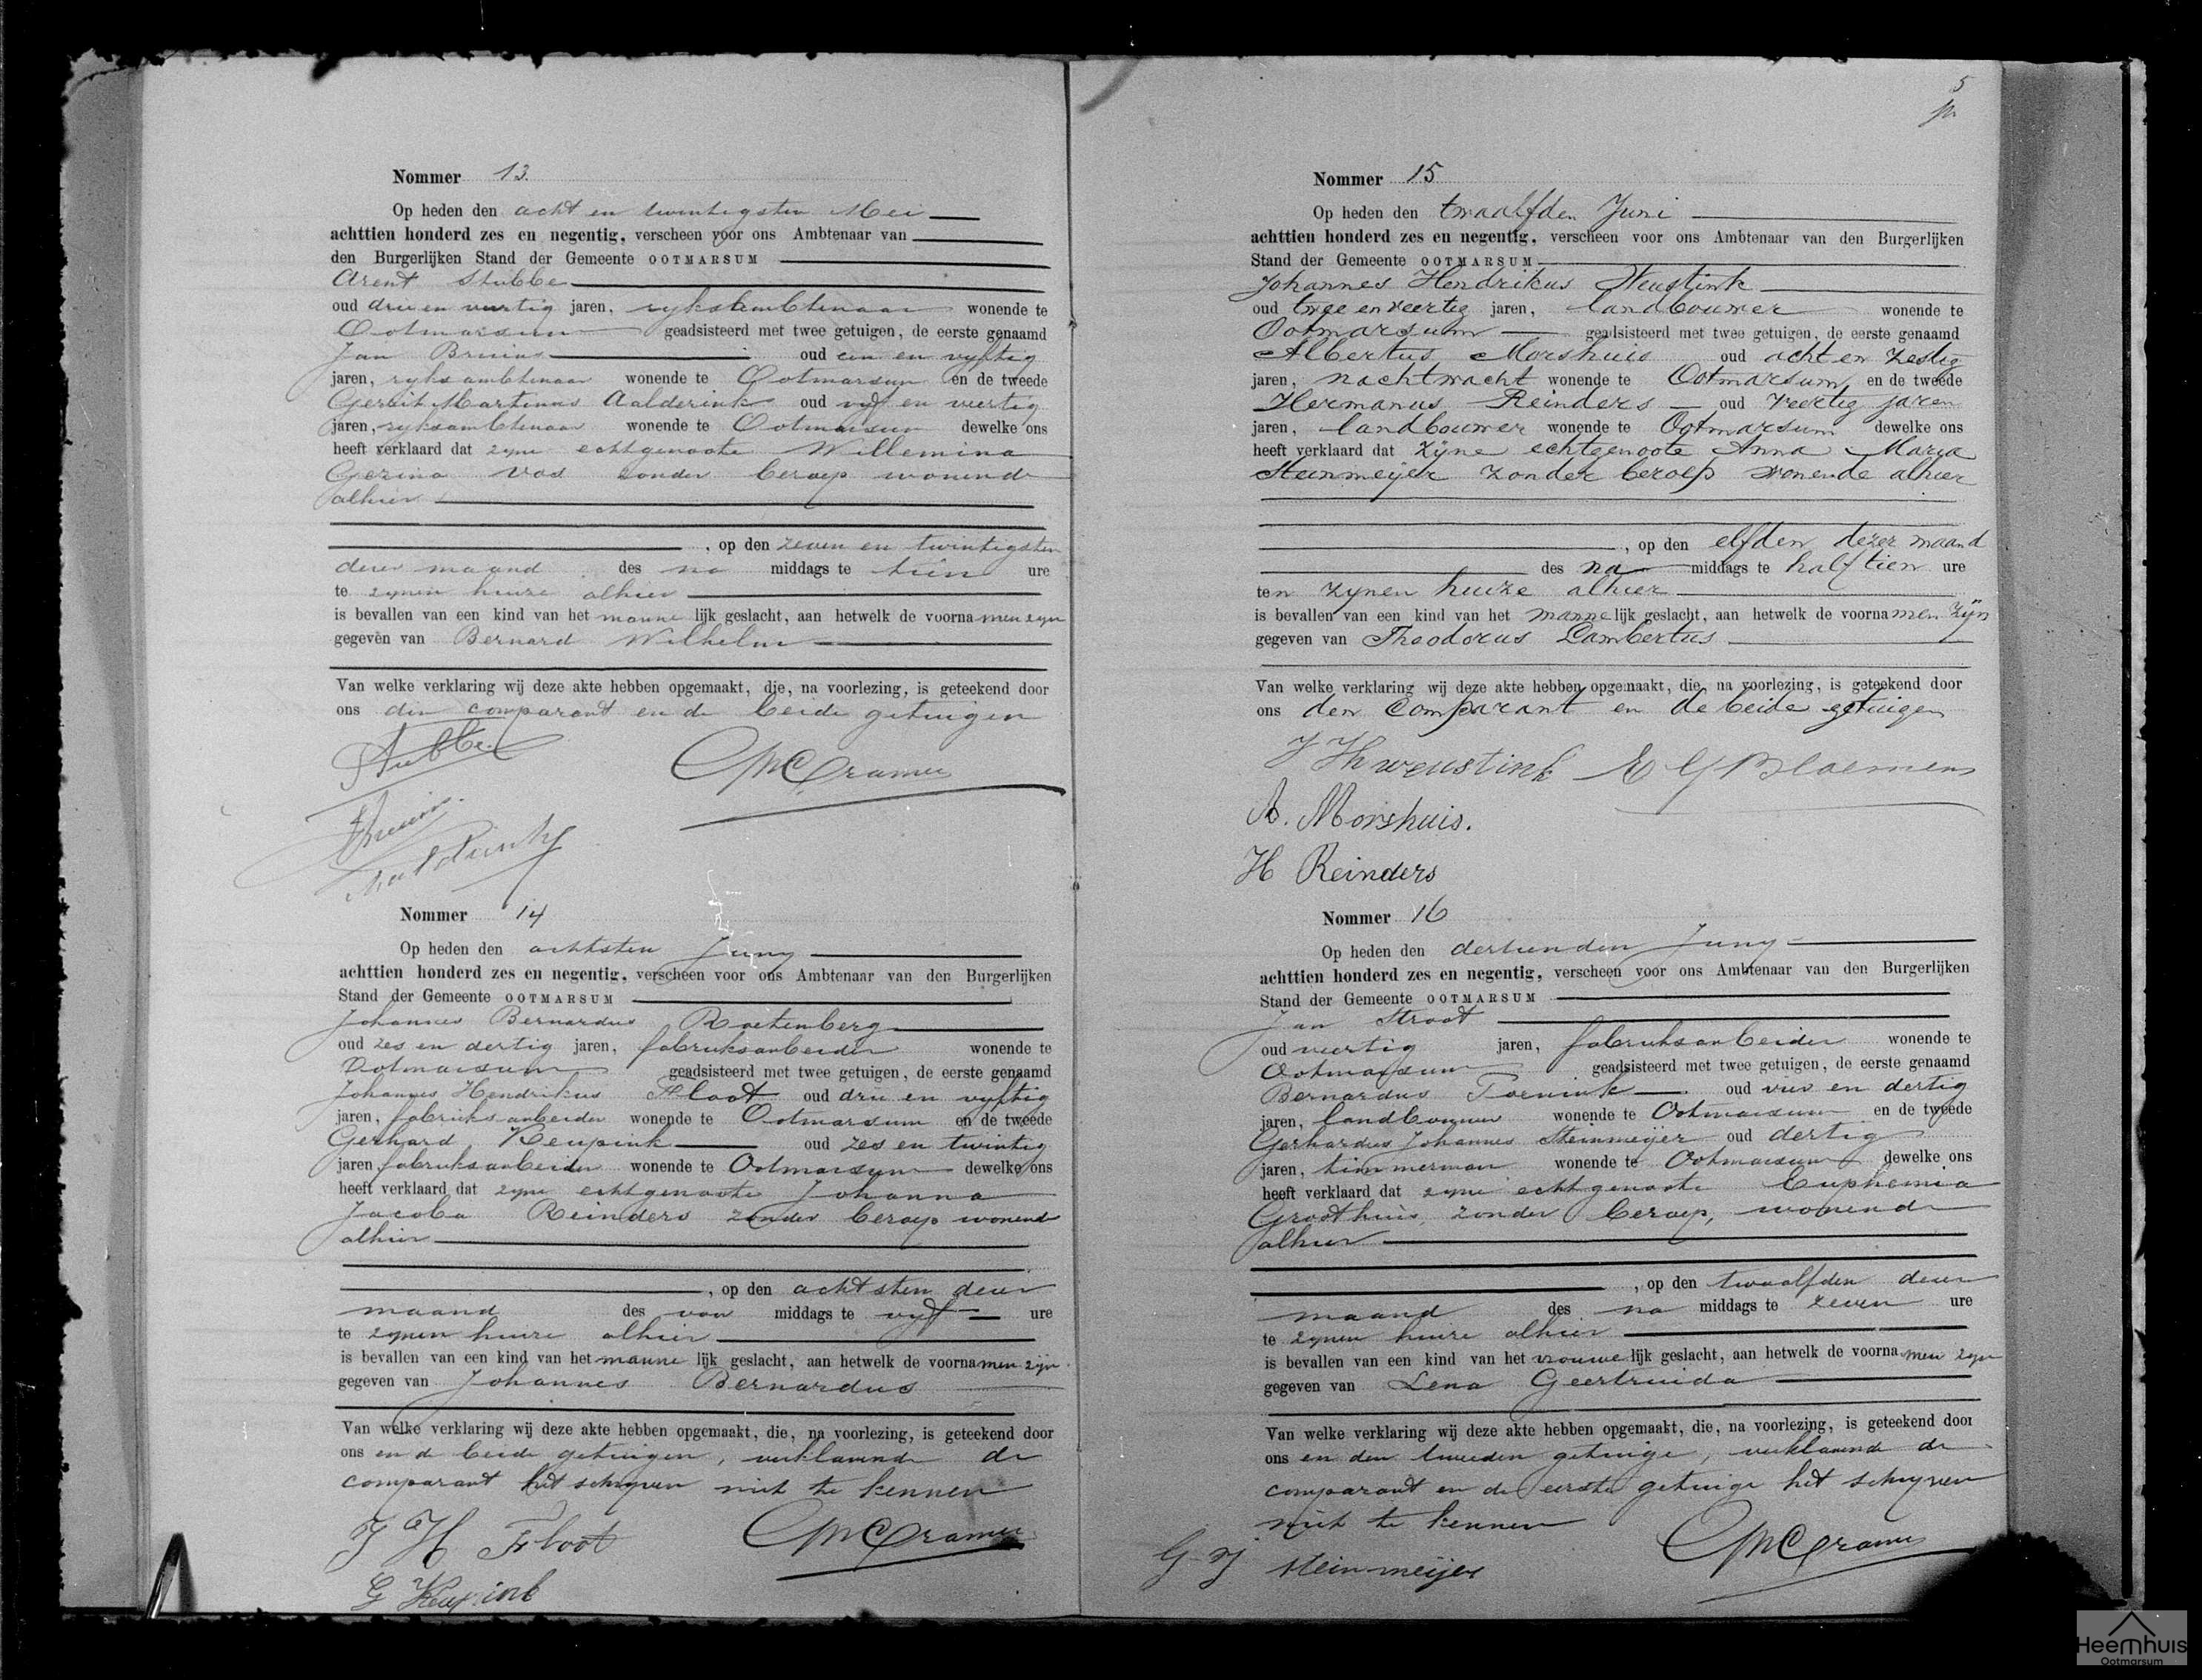 Nommer 13.
Op heden den acht en twintigsten Mei
achttien honderd zes en negentig, verscheen voor ons Ambtenaar van
den Burgerlijken Stand der Gemeente OOTMARSUM
Arent Stubbe
oud drie en veertig jaren, ryksambtenaar wonende te
Ootmarsum geadsisteerd met twee getuigen, de eerste genaamd
Jan Bruins oud een en vyftig
jaren, ryksambtenaar wonende te Ootmarsum en de tweede
Gerrit Martinus Aalderink oud vyf en veertig
jaren, ryksambtenaar wonende te Ootmarsum dewelke ons
heeft verklaard dat zyne echtgenoote Willemina
Gezina Vos zonder beroep wonende
alhier
, op den zeven en twintigsten
dezer maand des na middags te tien ure
te zynen huize alhier
is bevallen van een kind van het manne lijk geslacht, aan hetwelk de voorna men zyn
gegeven van Bernard Wilhelm
Van welke verklaring wij deze akte hebben opgemaakt, die, na voorlezing, is geteekend door
ons den comparant en de beide getuigen
Stubbe.
Cramer
Bruins.
Aalderink
Nommer 14
Op heden den achtsten Juny
achttien honderd zes en negentig, verscheen voor ons Ambtenaar van den Burgerlijken
Stand der Gemeente OOTMARSUM
Johannes Bernardus Roetenberg
oud zes en dertig jaren, fabrieksarbeider wonende te
Ootmarsum geadsisteerd met twee getuigen, de eerste genaamd
Johannes Hendrikus Floot oud drie en vyftig
jaren, fabrieksarbeider wonende te Ootmarsum en de tweede
Gerhard Keupink oud zes en twintig
jaren, fabrieksarbeider wonende te Ootmarsum dewelke ons
heeft verklaard dat zyne echtgenoote Johanna
Jacoba Reinders zonder beroep wonende
alhier
, op den achtsten dezer
maand des voor middags te vyf ure
te zynen huize alhier
is bevallen van een kind van het manne lijk geslacht, aan hetwelk de voorna men zijn
gegeven van Johannes Bernardus
Van welke verklaring wij deze akte hebben opgemaakt, die, na voorlezing, is geteekend door
ons en de beide getuigen, verklarende de
comparant het schryven niet te kennen
J H Floot
Cramer
G Keupink
5
Nommer 15
Op heden den twaalfden Juni
achttien honderd zes en negentig, verscheen voor ons Ambtenaar van den Burgerlijken
Stand der Gemeente OOTMARSUM
Johannes Hendrikus Weustink
oud twee en veertig jaren, landbouwer wonende te
Ootmarsum geadsisteerd met twee getuigen, de eerste genaamd
Albertus Morshuis oud acht en zestig
jaren, nachtwacht wonende te Ootmarsum en de tweede
Hermanus Reinders oud veertig jaren
jaren, landbouwer wonende te Ootmarsum dewelke ons
heeft verklaard dat zijne echtgenoote Anna Maria
Steinmeijer zonder beroep wonende alhier
, op den elfden dezer maand
des na middags te half tien ure
ten zynen huize alhier
is bevallen van een kind van het manne lijk geslacht, aan hetwelk de voorna men zijn
gegeven van Theodorus Lambertus
Van welke verklaring wij deze akte hebben opgemaakt, die, na voorlezing, is geteekend door
ons den Comparant en de beide getuigen
J H weustink Bloemen
A. Morshuis.
H Reinders
Nommer 16
Op heden den dertienden Juny
achttien honderd zes en negentig, verscheen voor ons Ambtenaar van den Burgerlijken
Stand der Gemeente OOTMARSUM
Jan Stroot
oud veertig jaren, fabrieksarbeider wonende te
Ootmarsum geadsisteerd met twee getuigen, de eerste genaamd
Bernardus Toenink oud vier en dertig
jaren, landbouwer wonende te Ootmarsum en de tweede
Gerhardus Johannes Steinmeijer oud dertig
jaren, timmerman wonende te Ootmarsum dewelke ons
heeft verklaard dat zyne echtgenoote Euphemia
Groothuis, zonder beroep, wonende
alhier
, op den twaalfden dezer
maand des na middags te zeven ure
te zynen huize alhier
is bevallen van een kind van het vrouwe lijk geslacht, aan hetwelk de voorna men zyn
gegeven van Lena Geertruida
Van welke verklaring wij deze akte hebben opgemaakt, die, na voorlezing, is geteekend door
ons en den tweeden getuige, verklarende de
comparant en de eerste getuige het schryven
niet te kennen
Cramer
G J Steinmeijer
Heemhuis
Ootmarsum